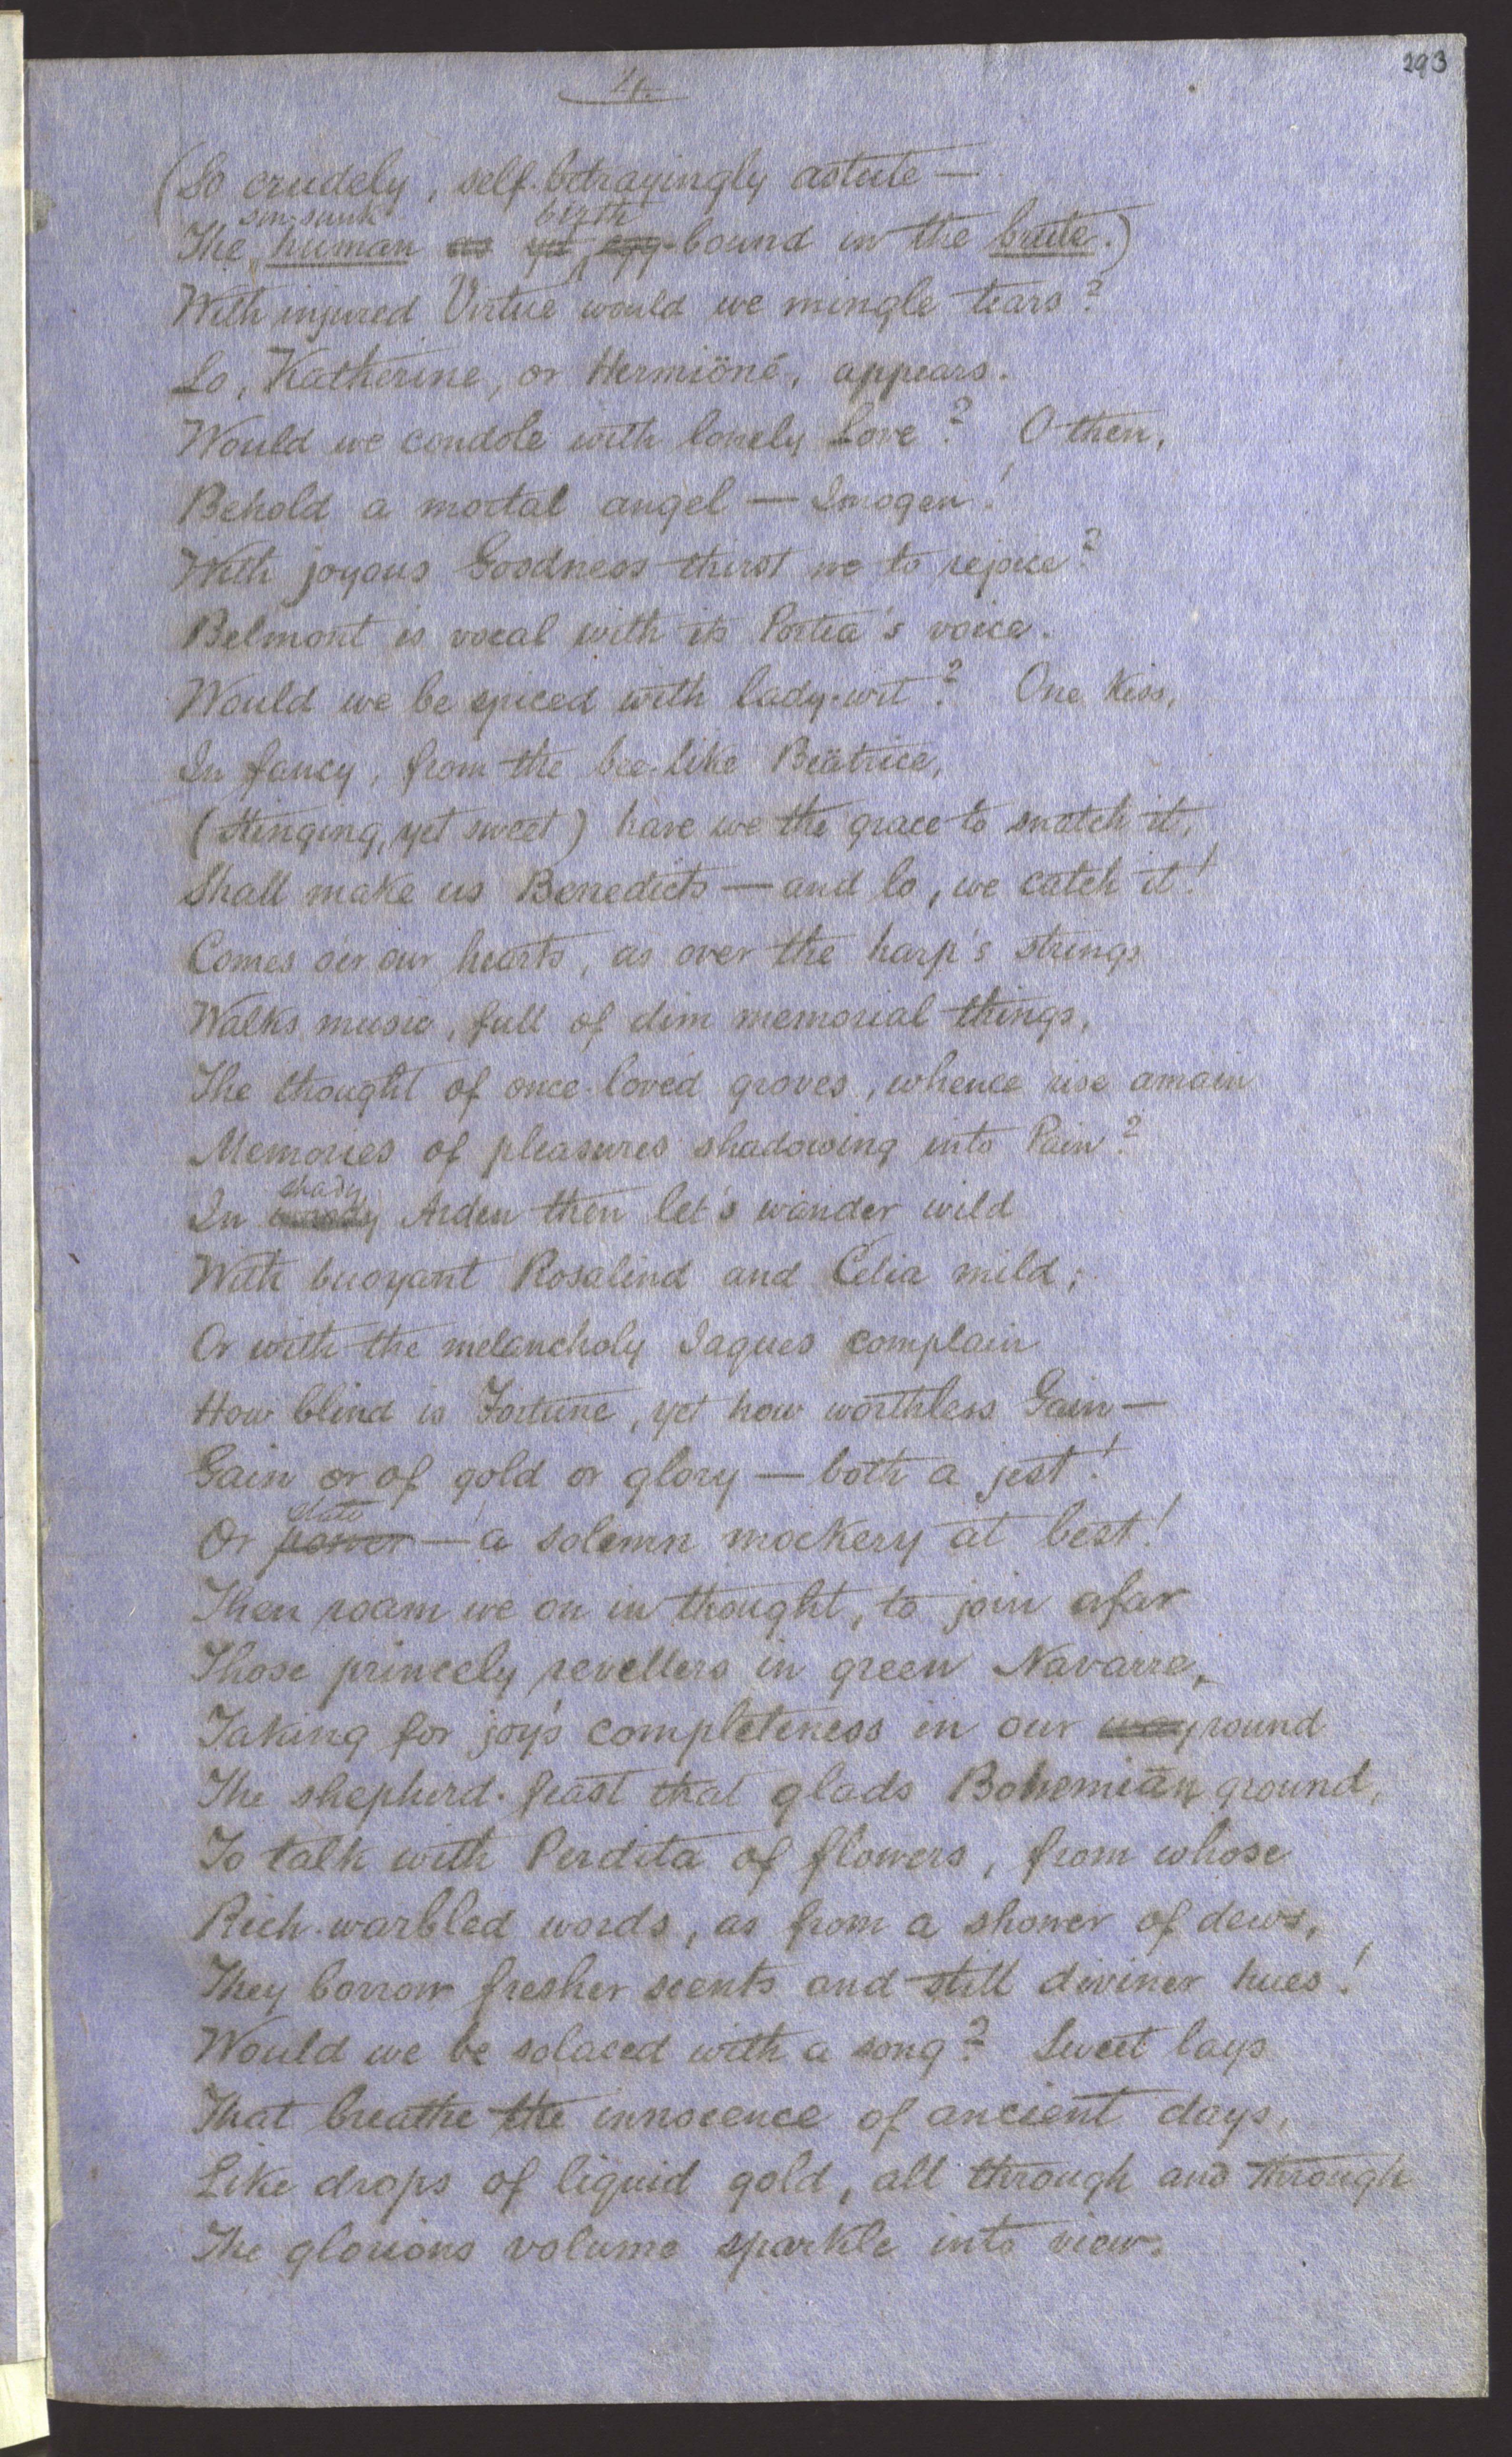 293
4.
(So crudely, self-betrayingly astute —
sin-sunk birth
The human as yet egg-bound in the brute.)
With injured Virtue would we mingle tears?
Lo, Katherine, or Hermiöné, appears.
Would we condole with lonely Love? O then,
Behold a mortal angel — Imogen!
With joyous Goodness thirst we to rejoice?
Belmont is vocal with its Portia's voice.
Would we be spiced with lady-wit? One kiss,
In fancy, from the bee-like Beätrice,
(Stinging, yet sweet) have we the grace to snatch it,
Shall make us Benedicts — and lo, we catch it!
Comes o'er our hearts, as over the harp's strings
Walks music, full of dim memorial things,
The thought of once-loved groves, whence rise amain
Memories of pleasures shadowing into Pain?
shady
In woody Arden then let's wander wild
With buoyant Rosalind and Celia mild;
Or with the melancholy Jaques complain
How blind is Fortune, yet how worthless Gain —
Gain or of gold or glory — both a jest!
state
Or power — a solemn mockery at best!
Then roam we on in thought, to join afar
Those princely revellers in green Navarre,
Taking for joy's completeness in our way round
The shepherd-feast that glads Bohemian ground,
To talk with Perdita of flowers, from whose
Rich-warbled words, as from a shower of dews,
They borrow fresher scents and still diviner hues!
Would we be solaced with a song? Sweet lays
That breathe the innocence of ancient days,
Like drops of liquid gold, all through and through
The glorious volume sparkle into view.